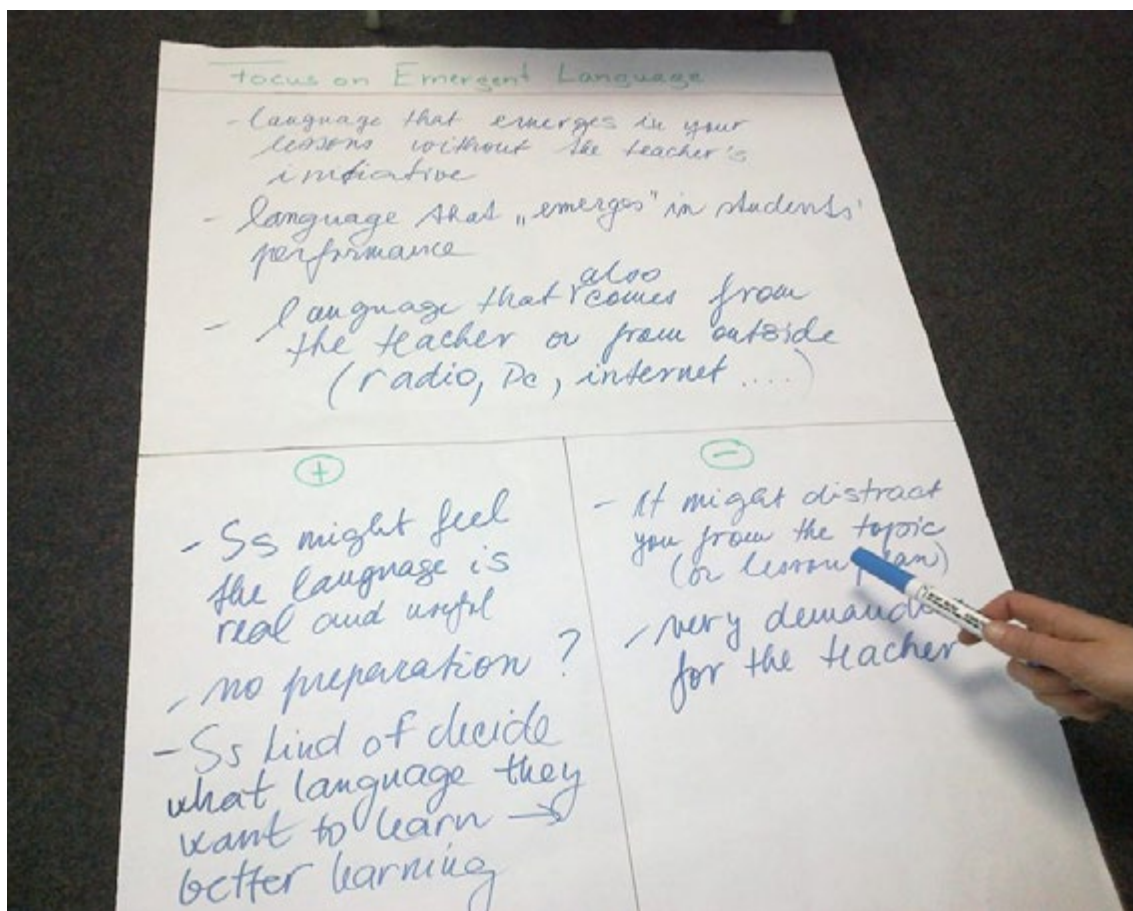 Focus on Emergent Language
- language that emerges in your
lessons without the teacher's
initiative
- language that „emerges" in students'
performance
also
- language that comes from
the teacher or from outside
(radio, Pc, internet ....)
+
- Ss might feel
the language is
real and useful
- no preparation ?
- Ss kind of decide
what language they
want to learn →
better learning
-
- It might distract
you from the topic
(or lesson plan)
- very
for the teacher